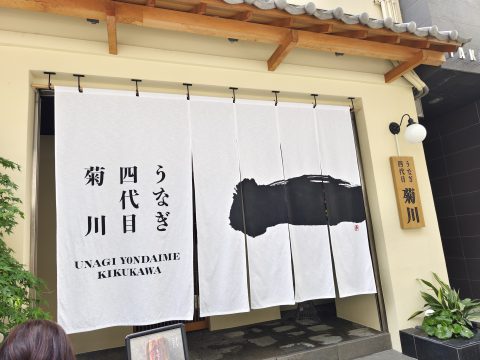 うなぎ
四代目
菊川
UNAGI YONDAIME
KIKUKAWA
うなぎ
四代目
菊川